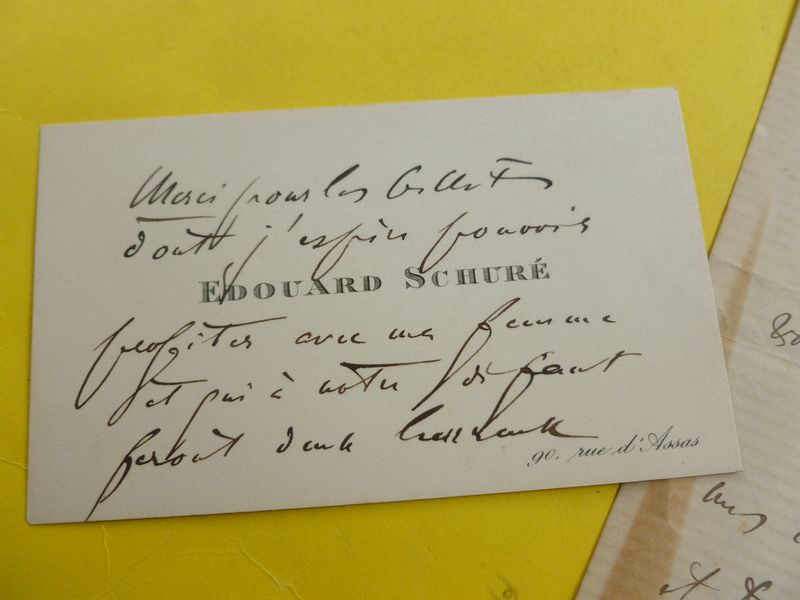 Merci pour les billets
dont j'espère pouvoir
EDOUARD SCHURÉ
profiter avec ma femme
et qui à notre défaut
feront deux heureux
90, rue d'Assas
et